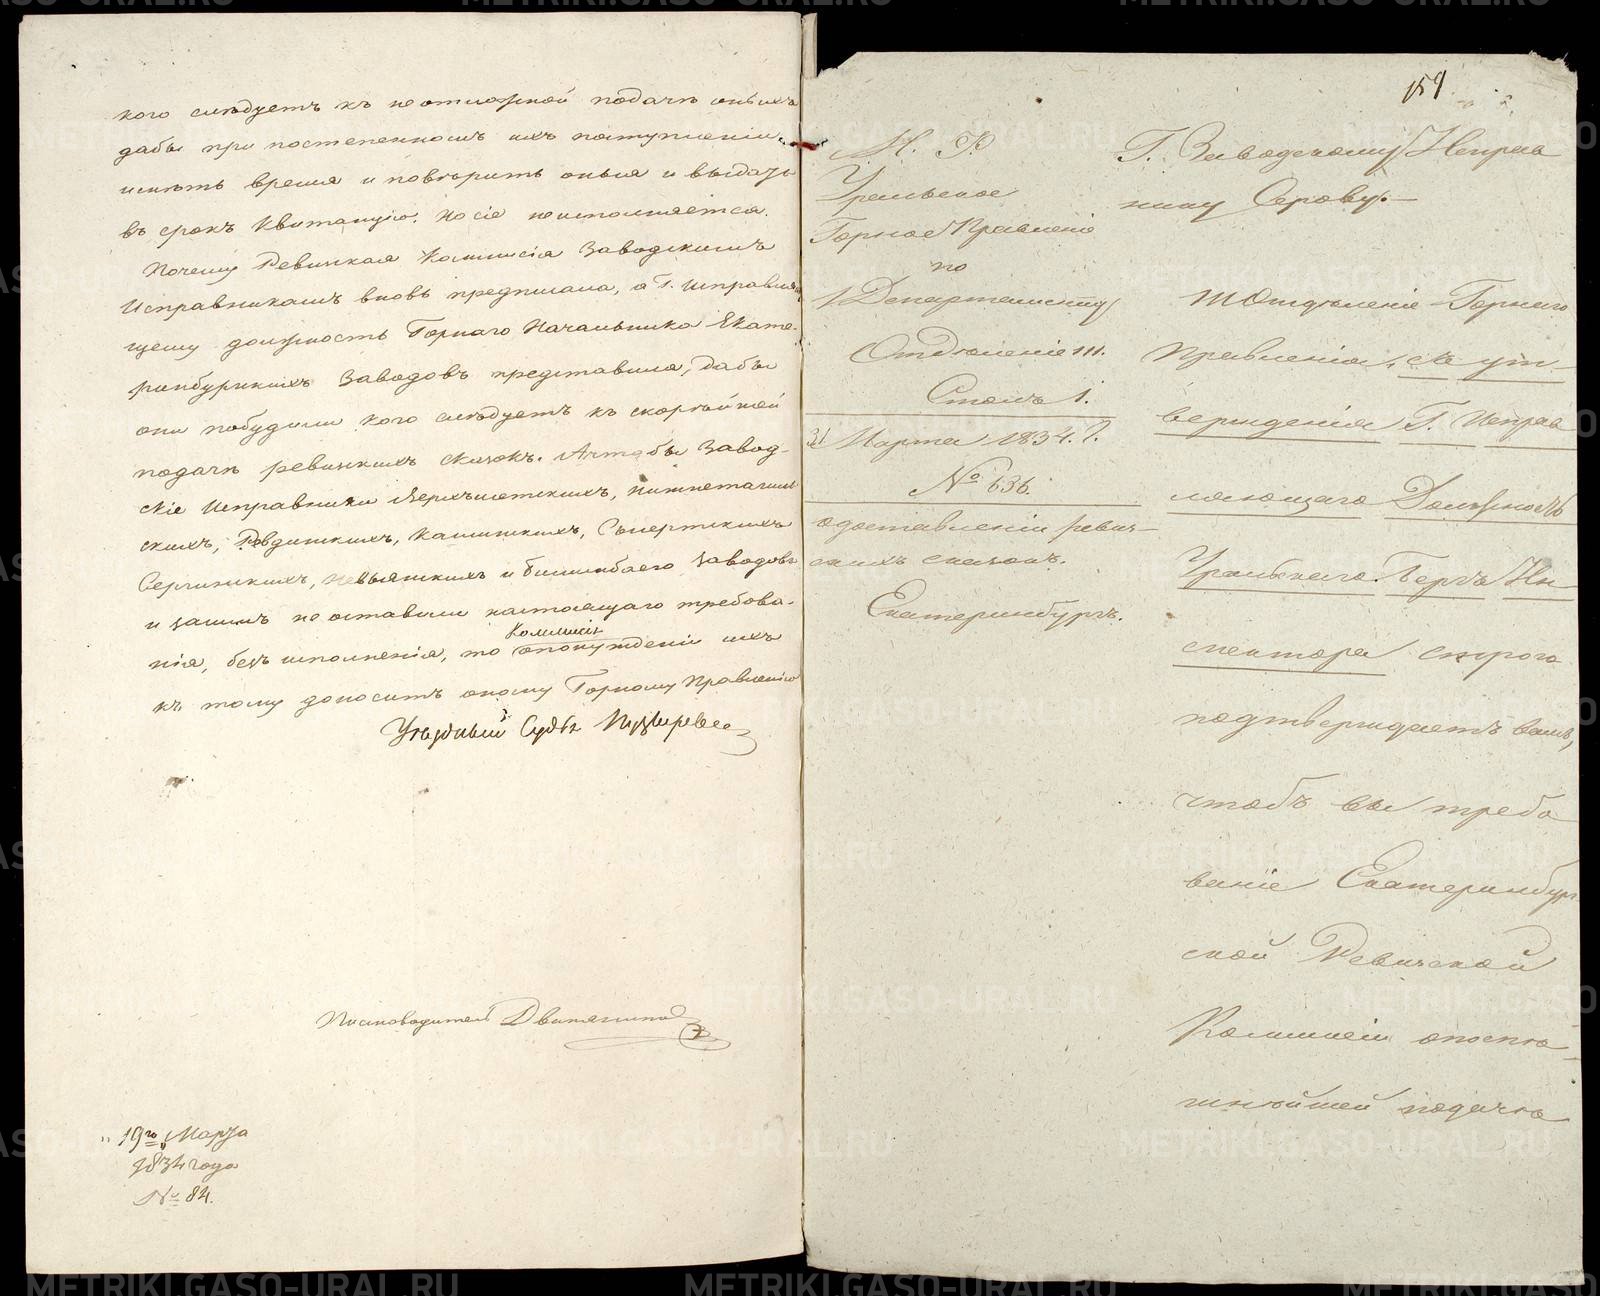 кого слѣдуетъ къ неотложной подачѣ оныхъ
дабы при постепенномъ ихъ поступленіи,
имѣть время и повѣрить оныя и выдать
въ срокъ квитанцію. Но сіе неисполняется.
Почему Ревижская Коммисія Заводскимъ
Исправникамъ вновь предписала, а Г. исправля
ющему должность Горнаго Начальника Екате-
ринбургскихъ Заводовъ представила, дабы
они побудили кого слѣдуетъ къ скорѣйшей
подачѣ ревижскихъ сказокъ. А чтобы Завод-
скіе Исправники Верхъисетскихъ, нижнетагиль
скихъ, Ревдинскихъ, Каслинскихъ, Сысертскихъ
Сергинскихъ, Невьянскихъ и Билимбаего заводовъ
и засимъ не оставили настоящаго требова-
нія, безъ исполненія, то
Коммисія
о понужденіи ихъ
къ тому доноситъ оному Горному Правленію
Уѣздный Судья
Письмоводитель
19го Марта
1834 года
№ 84.
159
М. Ф.
Уральское
Горное Правленіе
по
1 Департаменту
Отдѣленіе III.
Столъ 1.
31 Марта 1834. г.
№ 636.
о доставленіи ревиж-
скихъ сказокъ.
Екатеринбургъ.
Г. Заводскому Исправ
нику Серову.
III Отдѣленіе Горнаго
Правленія, съ ут-
вержденія Г. Исправ
ляющаго Должность
Уральскаго Бергъ Ин-
спектора строго
подтверждаетъ вамъ,
чтобъ вы требо
ваніе Екатеринбург
ской Ревижской
Коммисіи о поспѣ-
шнѣйшей подачѣ
METRIKI.GASO-URAL.RU